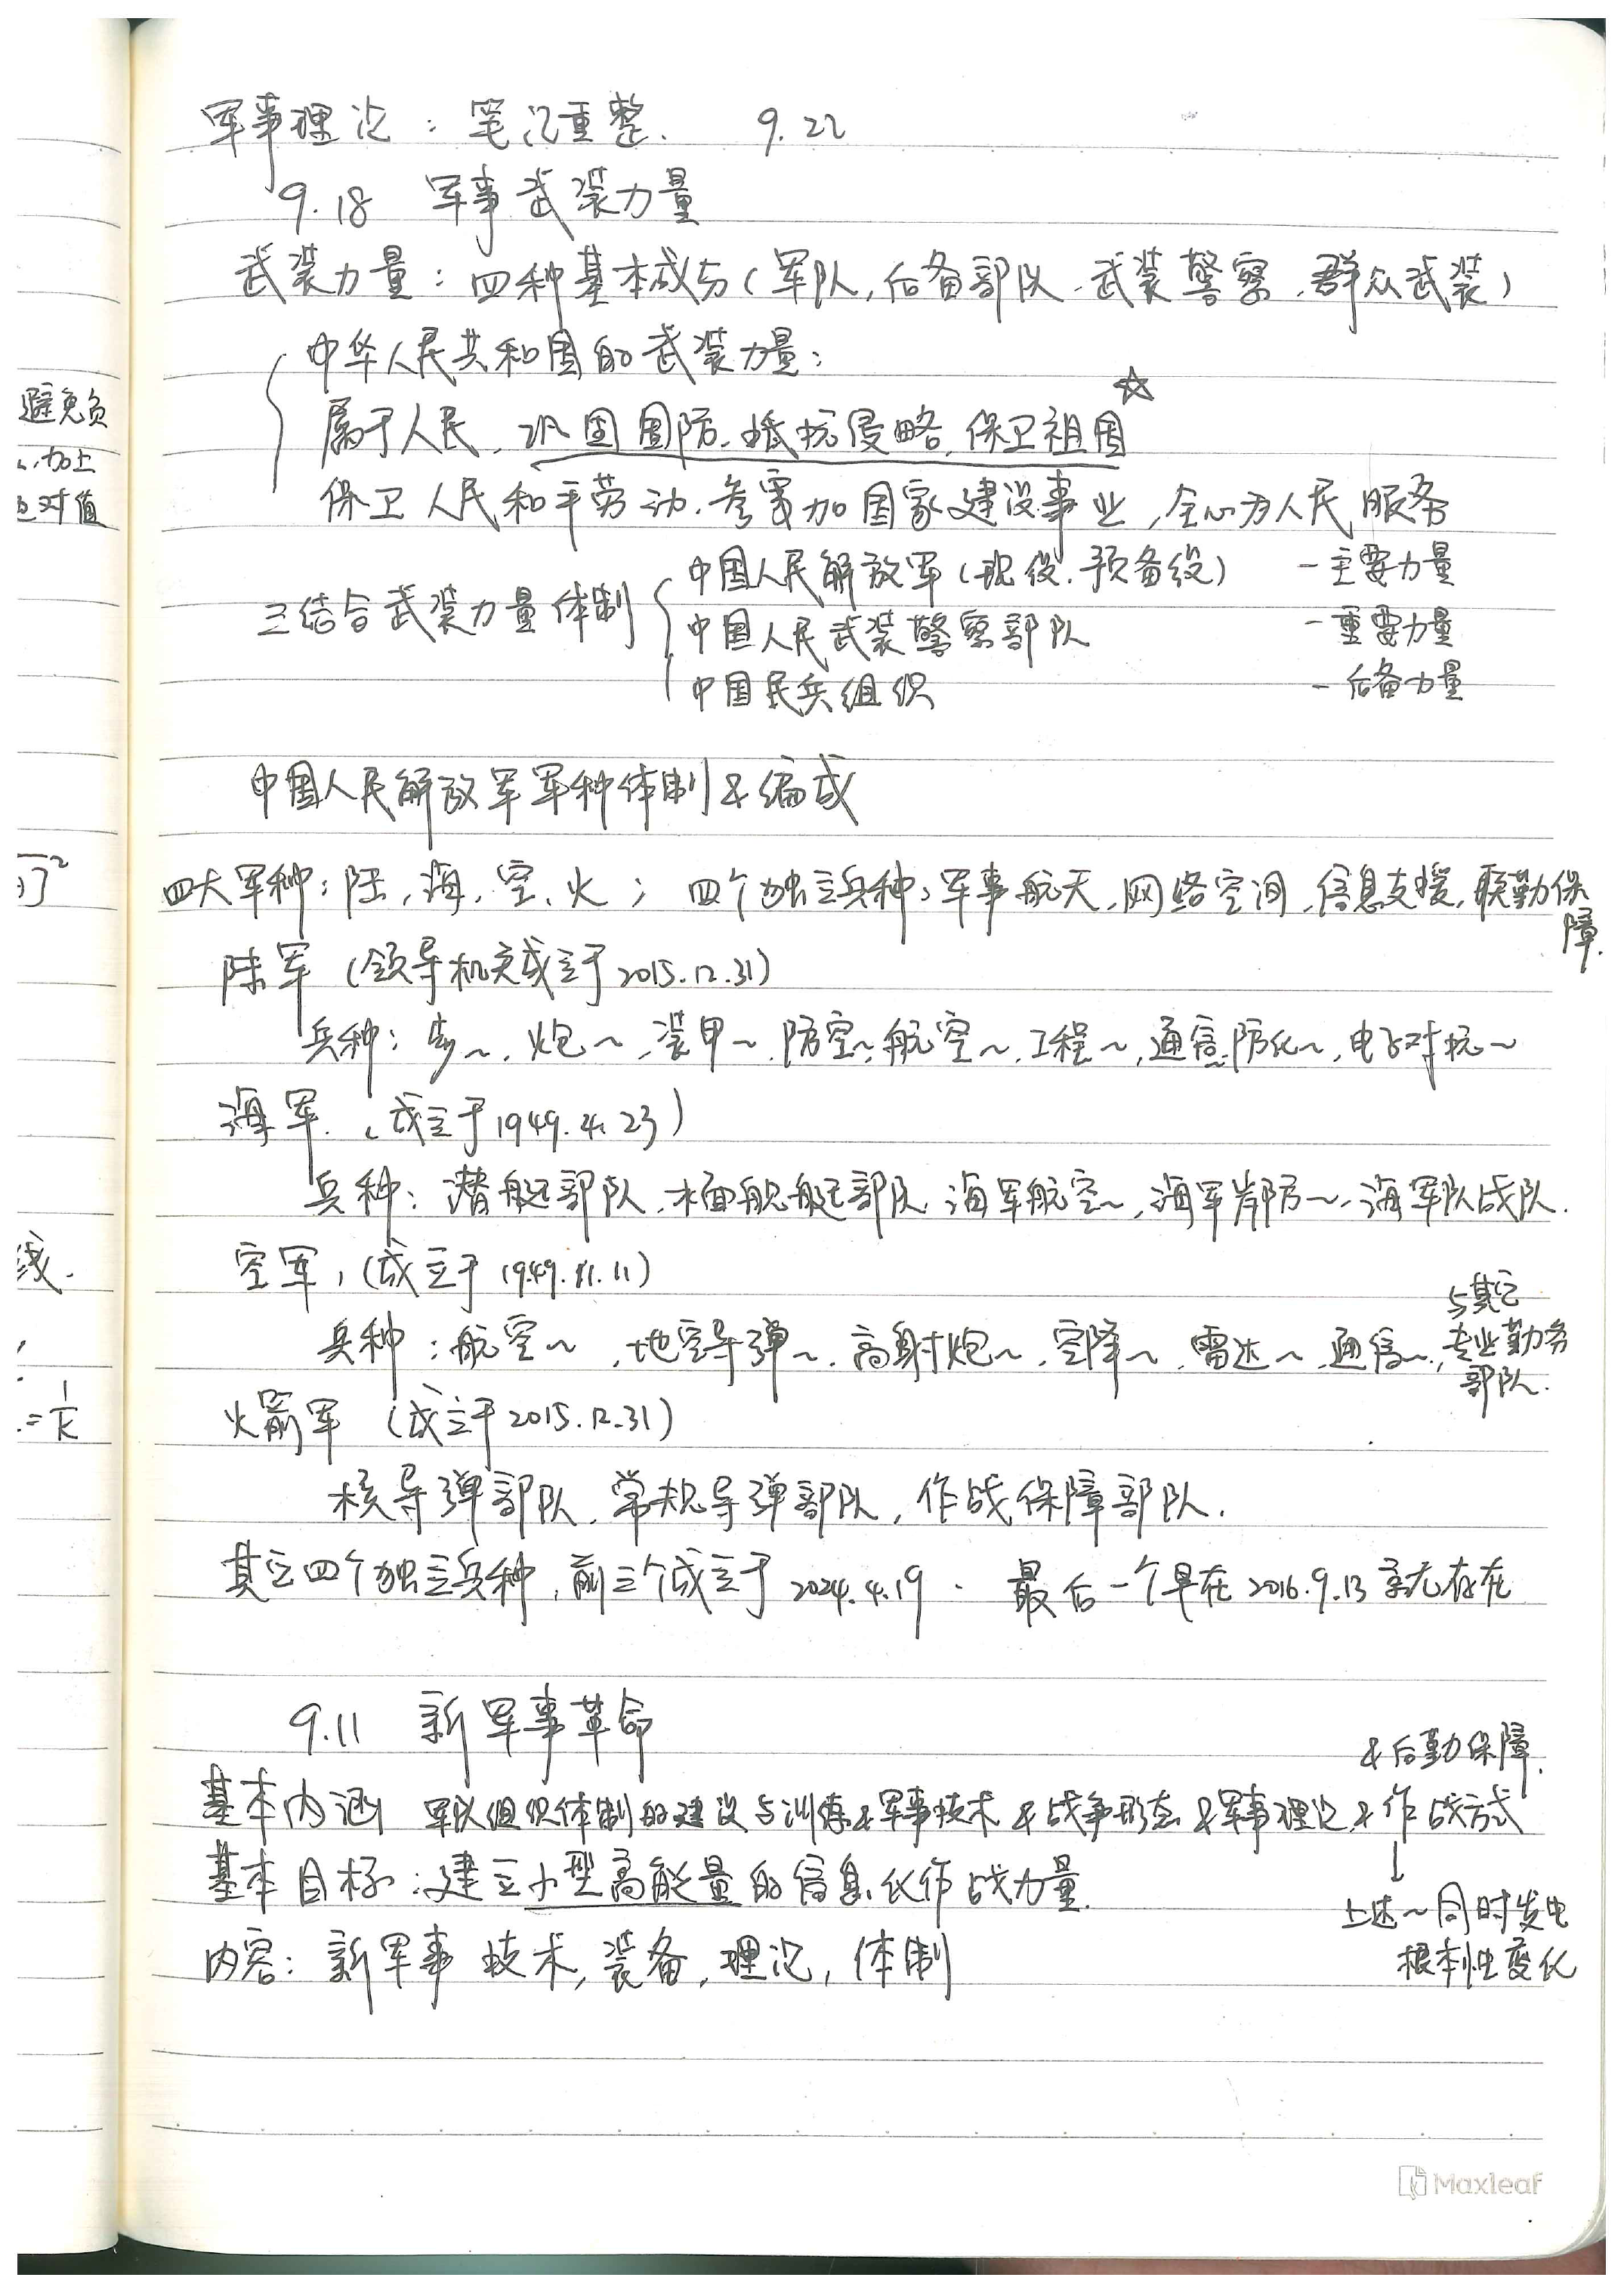 军事理论：笔记重整. 9.22
9.18 军事武装力量
武装力量：四种基本成分（军队,后备部队.武装警察.群众武装）
中华人民共和国的武装力量：
属于人民，巩固国防.抵抗侵略.保卫祖国 ☆
保卫人民和平劳动.参加国家建设事业,全心为人民服务
三结合武装力量体制
中国人民解放军（现役.预备役） - 主要力量
中国人民武装警察部队 - 重要力量
中国民兵组织 - 后备力量
中国人民解放军军种体制&编成
四大军种：陆,海,空,火; 四个独立兵种：军事航天,网络空间,信息支援,联勤保障.
陆军（领导机关成立于2015.12.31）
兵种：步~,炮~,装甲~.防空~,航空~,工程~,通信~,防化~,电子对抗~
海军.（成立于1949.4.23）
兵种：潜艇部队.水面舰艇部队.海军航空~,海军岸防~.海军陆战队.
空军,（成立于1949.11.11）
兵种：航空~,地空导弹~,高射炮~,空降~,雷达~,通信~,与其它专业勤务部队.
火箭军（成立于2015.12.31）
核导弹部队,常规导弹部队,作战保障部队.
其它四个独立兵种,前三个成立于2024.4.19. 最后一个早在2016.9.13就已存在
9.11 新军事革命
&后勤保障.
基本内涵 军队组织体制的建设与训练&军事技术&战争形态&军事理论&作战方式
↓
基本目标：建立小型高能量的信息化作战力量.
上述~同时发生
根本性变化
内容：新军事技术,装备,理论,体制
避免负
加上
对值
线.
=1/k
Maxleaf